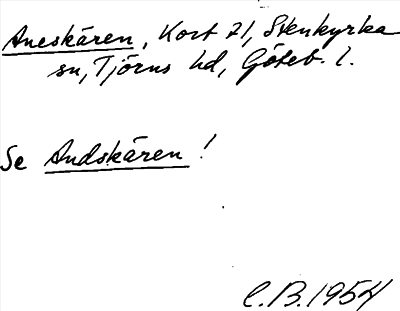 Aneskären, Kort 21, Stenkyrka
sn, Tjörns hd, Göteb. l.
Se Andskären!
C.B. 1954